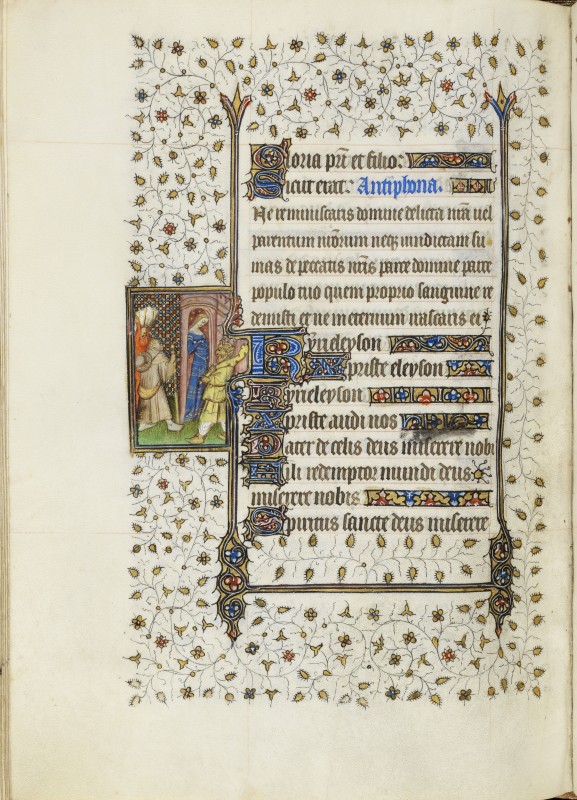 Gloria pri et filio.
Sicut erat. Antiphona.
Ne reminiscaris domine delicta nra vel
parentum nrorum neqz vindictam su
mas de peccatis nris parce domine parce
populo tuo quem proprio sanguine re
demisti et ne in eternum irascaris ei
Kyrieleyson
Xpriste eleyson
Kyrieleyson
Xpriste audi nos
Pater de celis deus miserere nobi
Fili redemptor mundi deus
miserere nobis
Spiritus sancte deus miserere